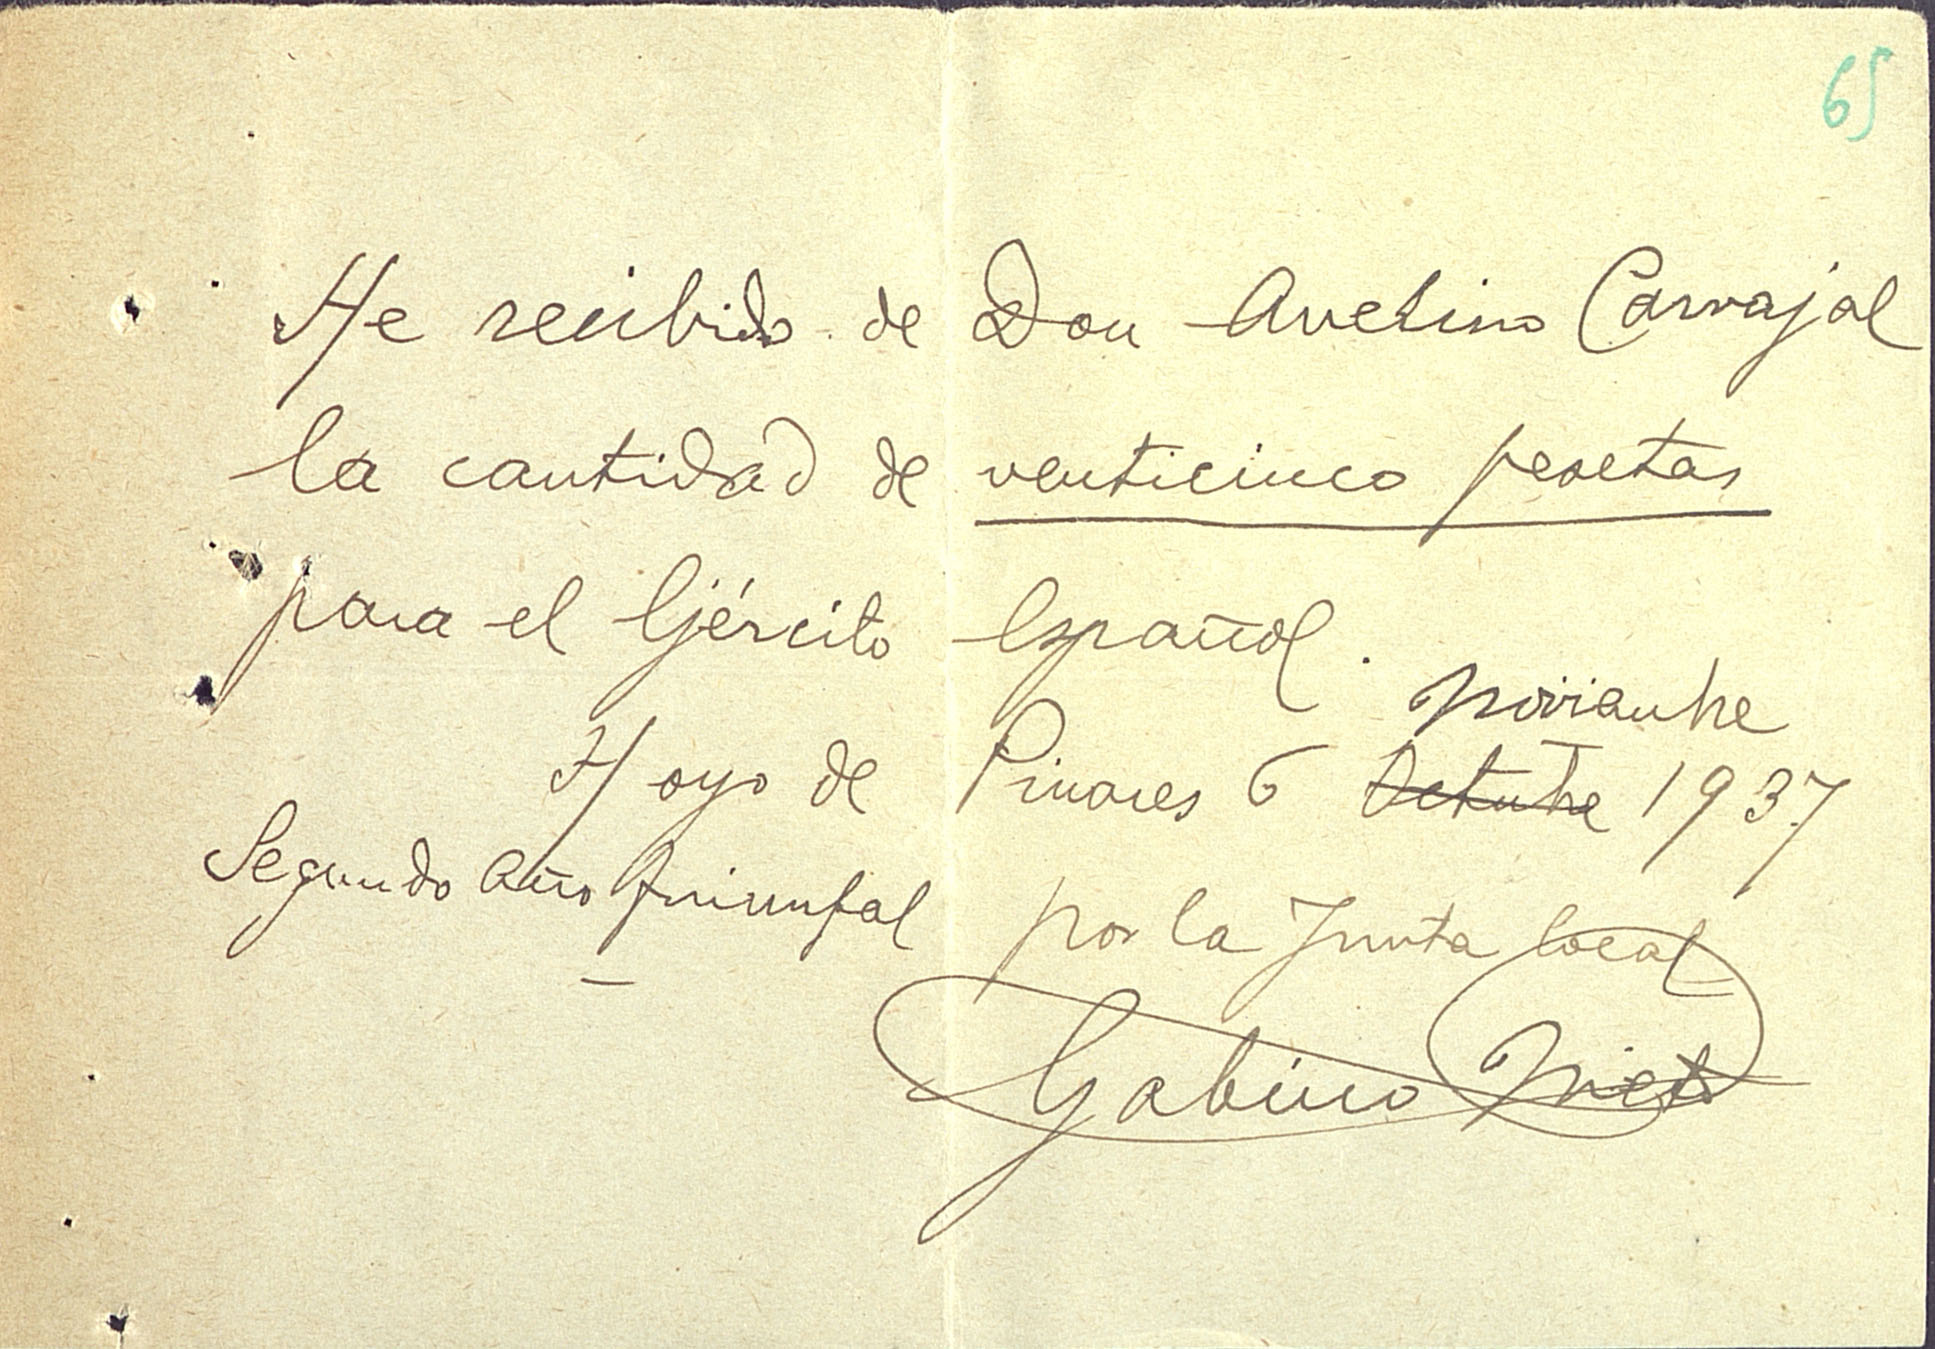 65
He recibido de Don Avelino Carvajal
la cantidad de venticinco pesetas
para el Ejército Español.
noviembre
Hoyo de Pinares 6 Octubre 1937
Segundo Año Triunfal
por la Junta local
Gabino Nieto